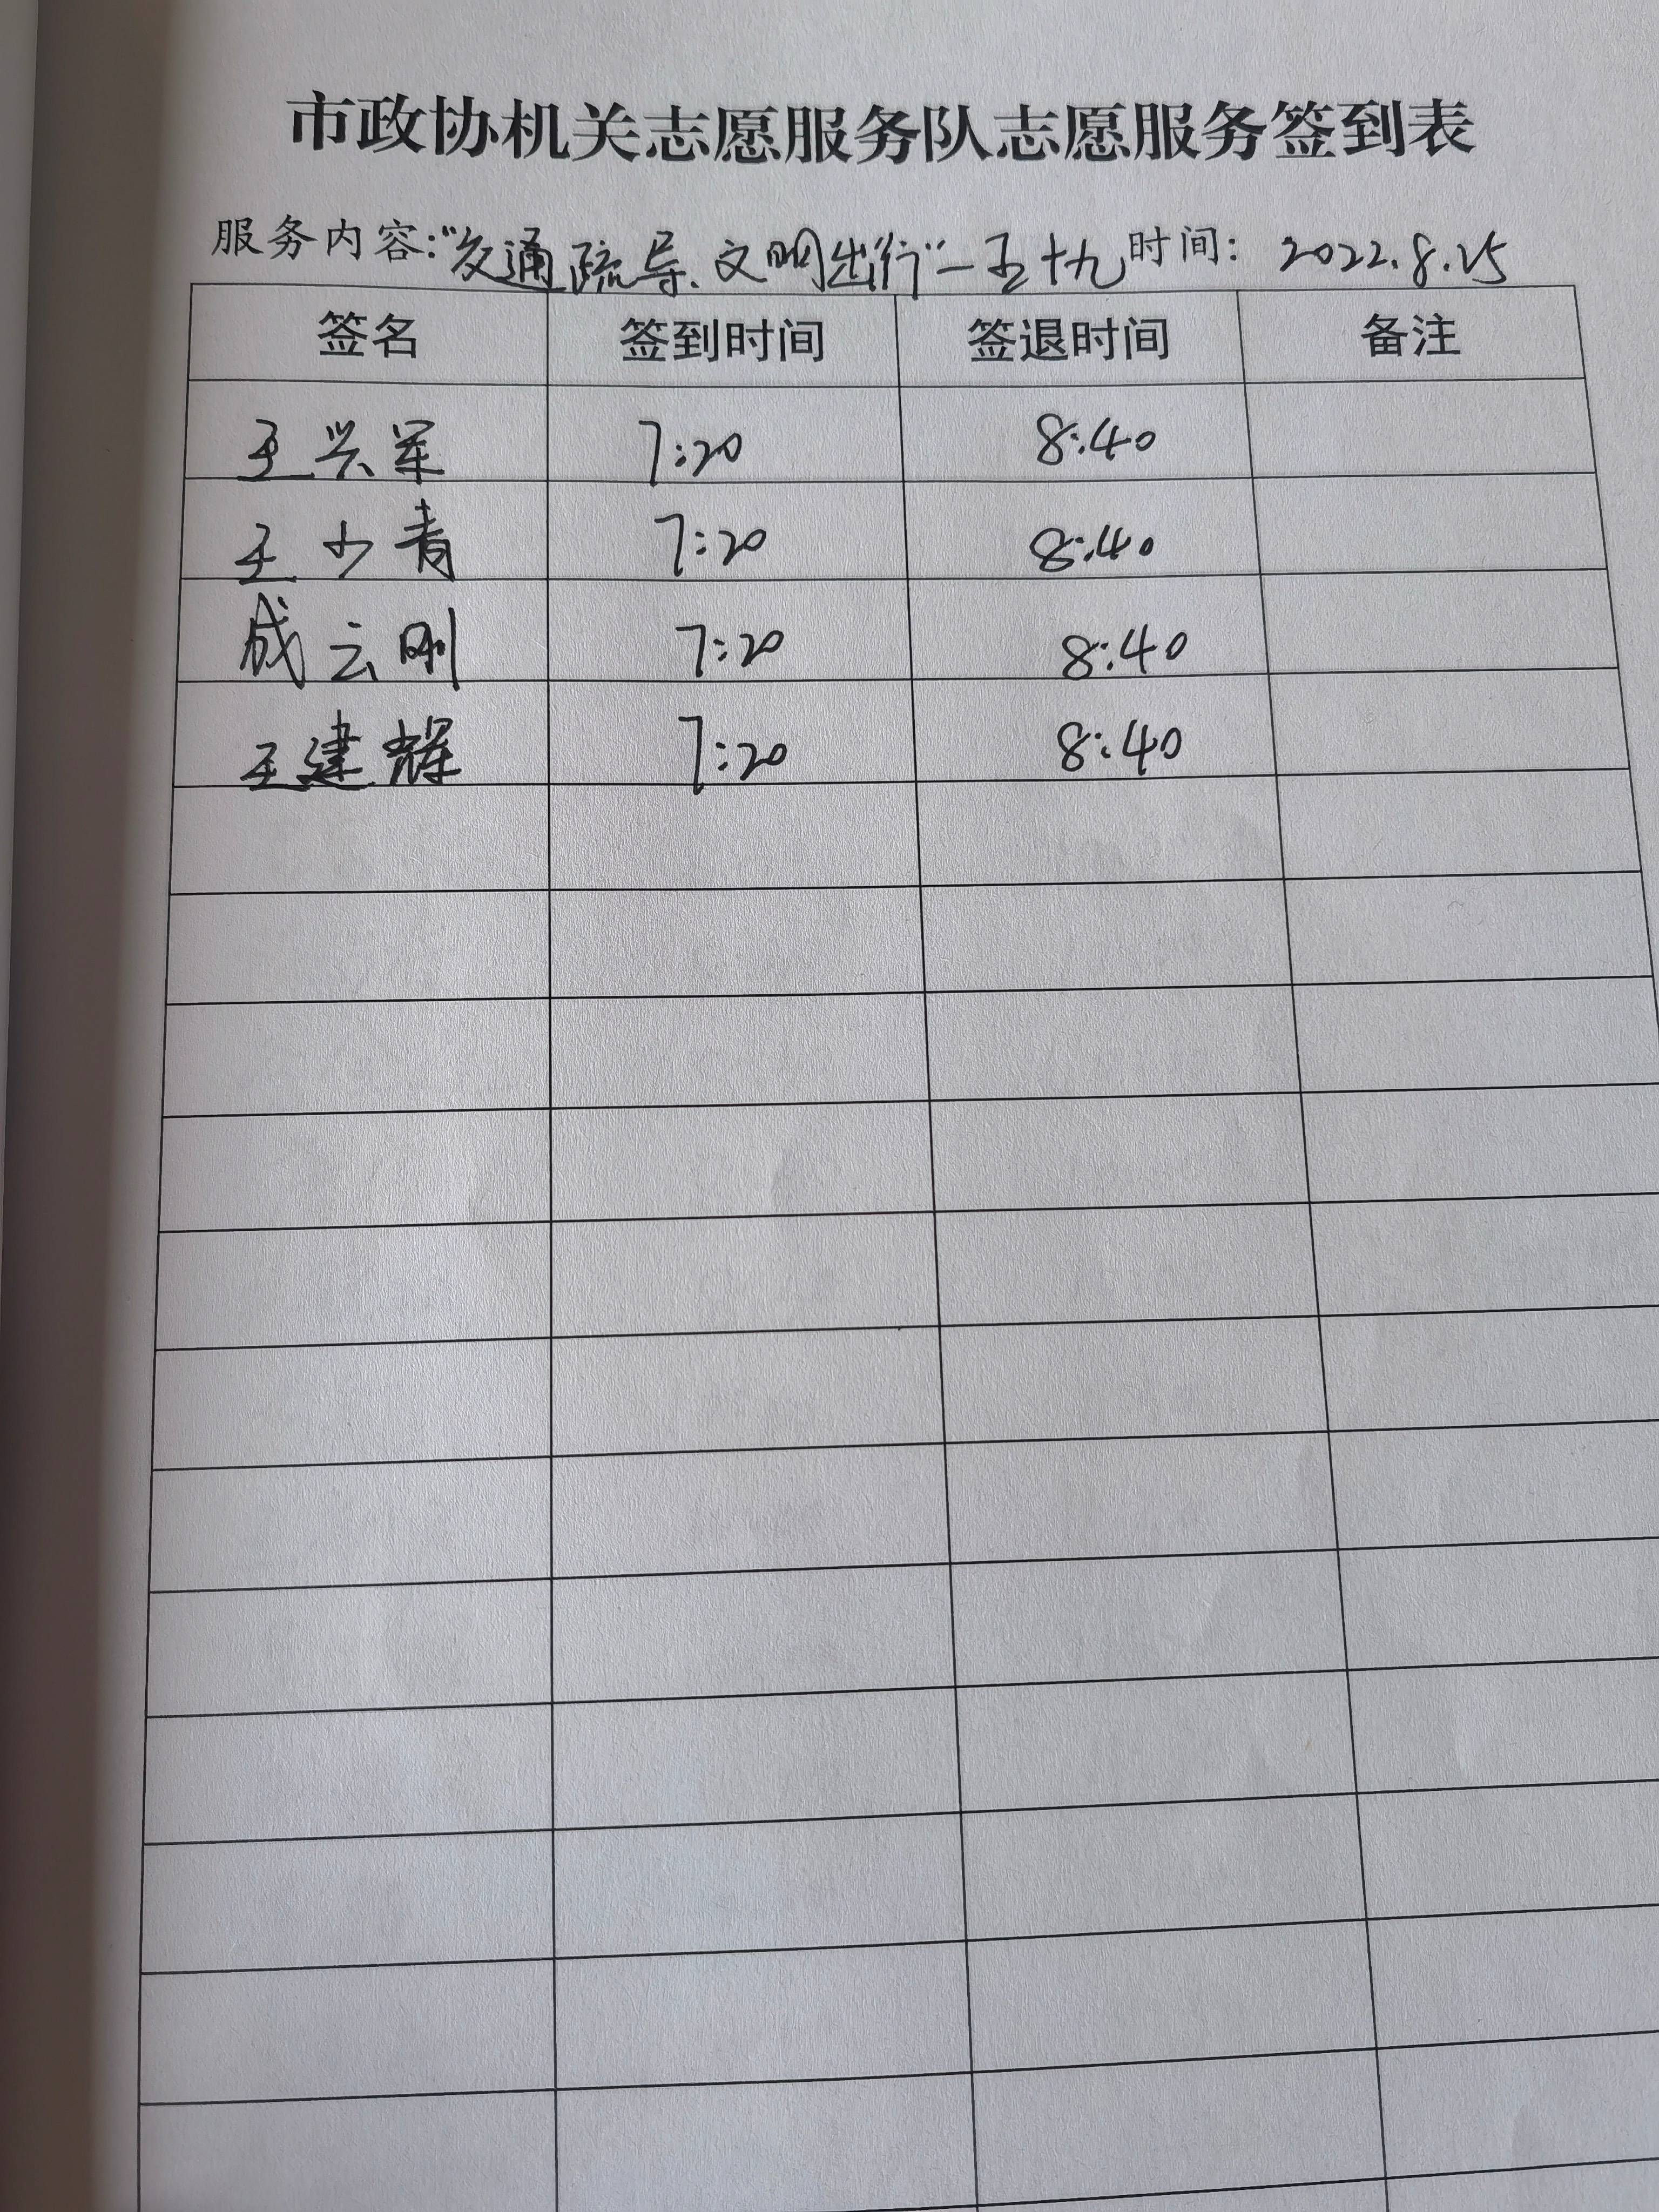 市政协机关志愿服务队志愿服务签到表
服务内容:“交通疏导、文明出行”—五十九 时间: 2022.8.25
签名 签到时间 签退时间 备注
王兴军 7:20 8:40
王少青 7:20 8:40
成云刚 7:20 8:40
王建辉 7:20 8:40